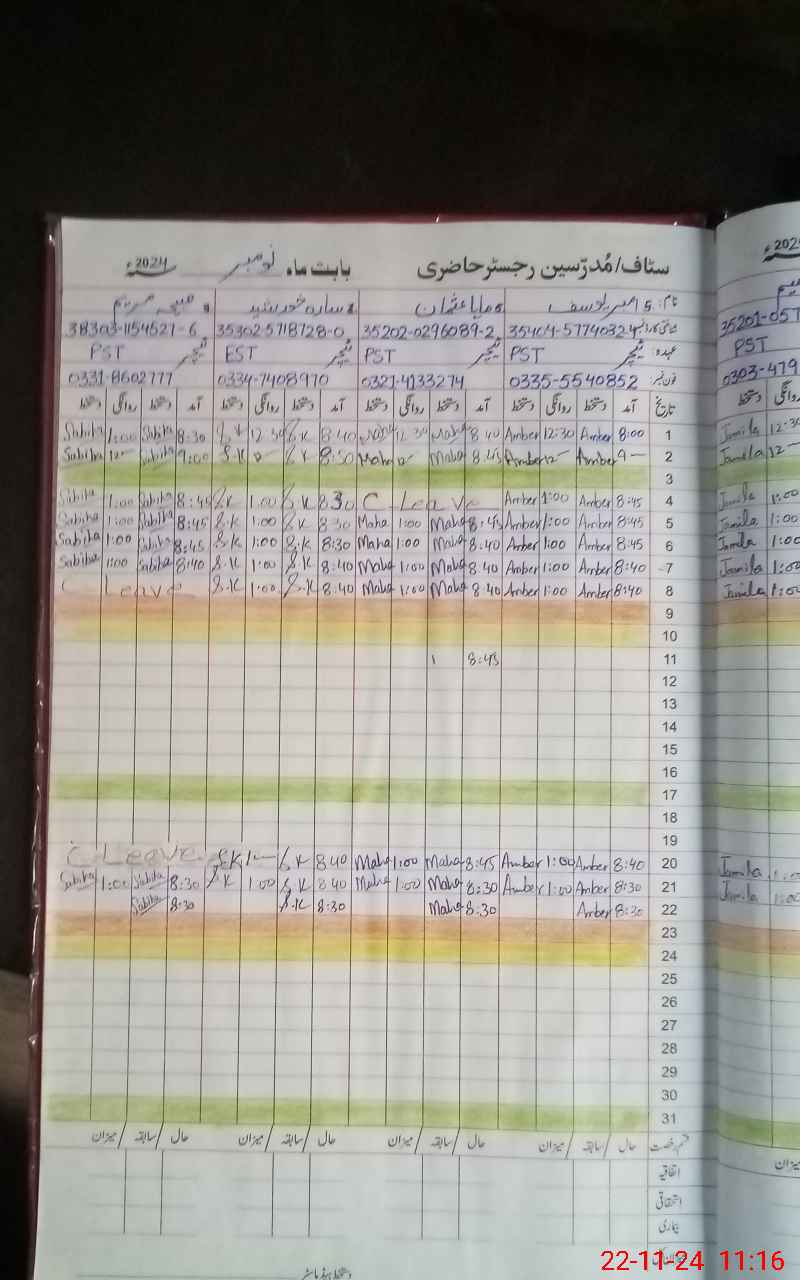 سٹاف/مُدرّسین رجسٹر حاضری بابت ماہ نومبر 2024ء
نام: امبر یوسف ماہا عثمان سارہ خورشید صبیحہ مریم
35404-5774032-4 35202-0296089-2 35302-5718728-0 38303-1154521-6 35201-057
عہدہ: PST ٹیچر PST ٹیچر EST ٹیچر PST ٹیچر PST
فون نمبر: 0335-5540852 0321-4133274 0334-7408970 0331-8602777 0303-479
تاریخ آمد دستخط روانگی دستخط آمد دستخط روانگی دستخط آمد دستخط روانگی دستخط آمد دستخط روانگی دستخط
Sabiha 1:00 Sabiha 8:30 S.K 12:30 S.K 8:40 Maha 12:30 Maha 8:40 Amber 12:30 Amber 8:00 1 Jamila 12:30
Sabiha 12 Sabiha 9:00 S.K 12 S.K 8:50 Maha 12 Maha 8:45 Amber 12 Amber 9 2 Jamila 12
3
Sabiha 1:00 Sabiha 8:45 S.K 1:00 S.K 8:30 C Leave Amber 1:00 Amber 8:45 4 Jamila 1:00
Sabiha 1:00 Sabiha 8:45 S.K 1:00 S.K 8:30 Maha 1:00 Maha 8:45 Amber 1:00 Amber 8:45 5 Jamila 1:00
Sabiha 1:00 Sabiha 8:45 S.K 1:00 S.K 8:30 Maha 1:00 Maha 8:40 Amber 1:00 Amber 8:45 6 Jamila 1:00
Sabiha 1:00 Sabiha 8:40 S.K 1:00 S.K 8:40 Maha 1:00 Maha 8:40 Amber 1:00 Amber 8:40 7 Jamila 1:00
C Leave S.K 1:00 S.K 8:40 Maha 1:00 Maha 8:40 Amber 1:00 Amber 8:40 8 Jamila 1:00
9
10
8:45 11
12
13
14
15
16
17
18
19
C Leave S.K 1 S.K 8:40 Maha 1:00 Maha 8:45 Amber 1:00 Amber 8:40 20 Jamila 1:00
Sabiha 1:00 Sabiha 8:30 S.K 1:00 S.K 8:40 Maha 1:00 Maha 8:30 Amber 1:00 Amber 8:30 21 Jamila 1:00
Sabiha 8:30 S.K 8:30 Maha 8:30 Amber 8:30 22
23
24
25
26
27
28
29
30
31
قسم رخصت حال سابقہ میزان حال سابقہ میزان حال سابقہ میزان حال سابقہ میزان
اتفاقیہ
استحقاقی
بیماری
دستخط ہیڈ ماسٹر
22-11-24 11:16